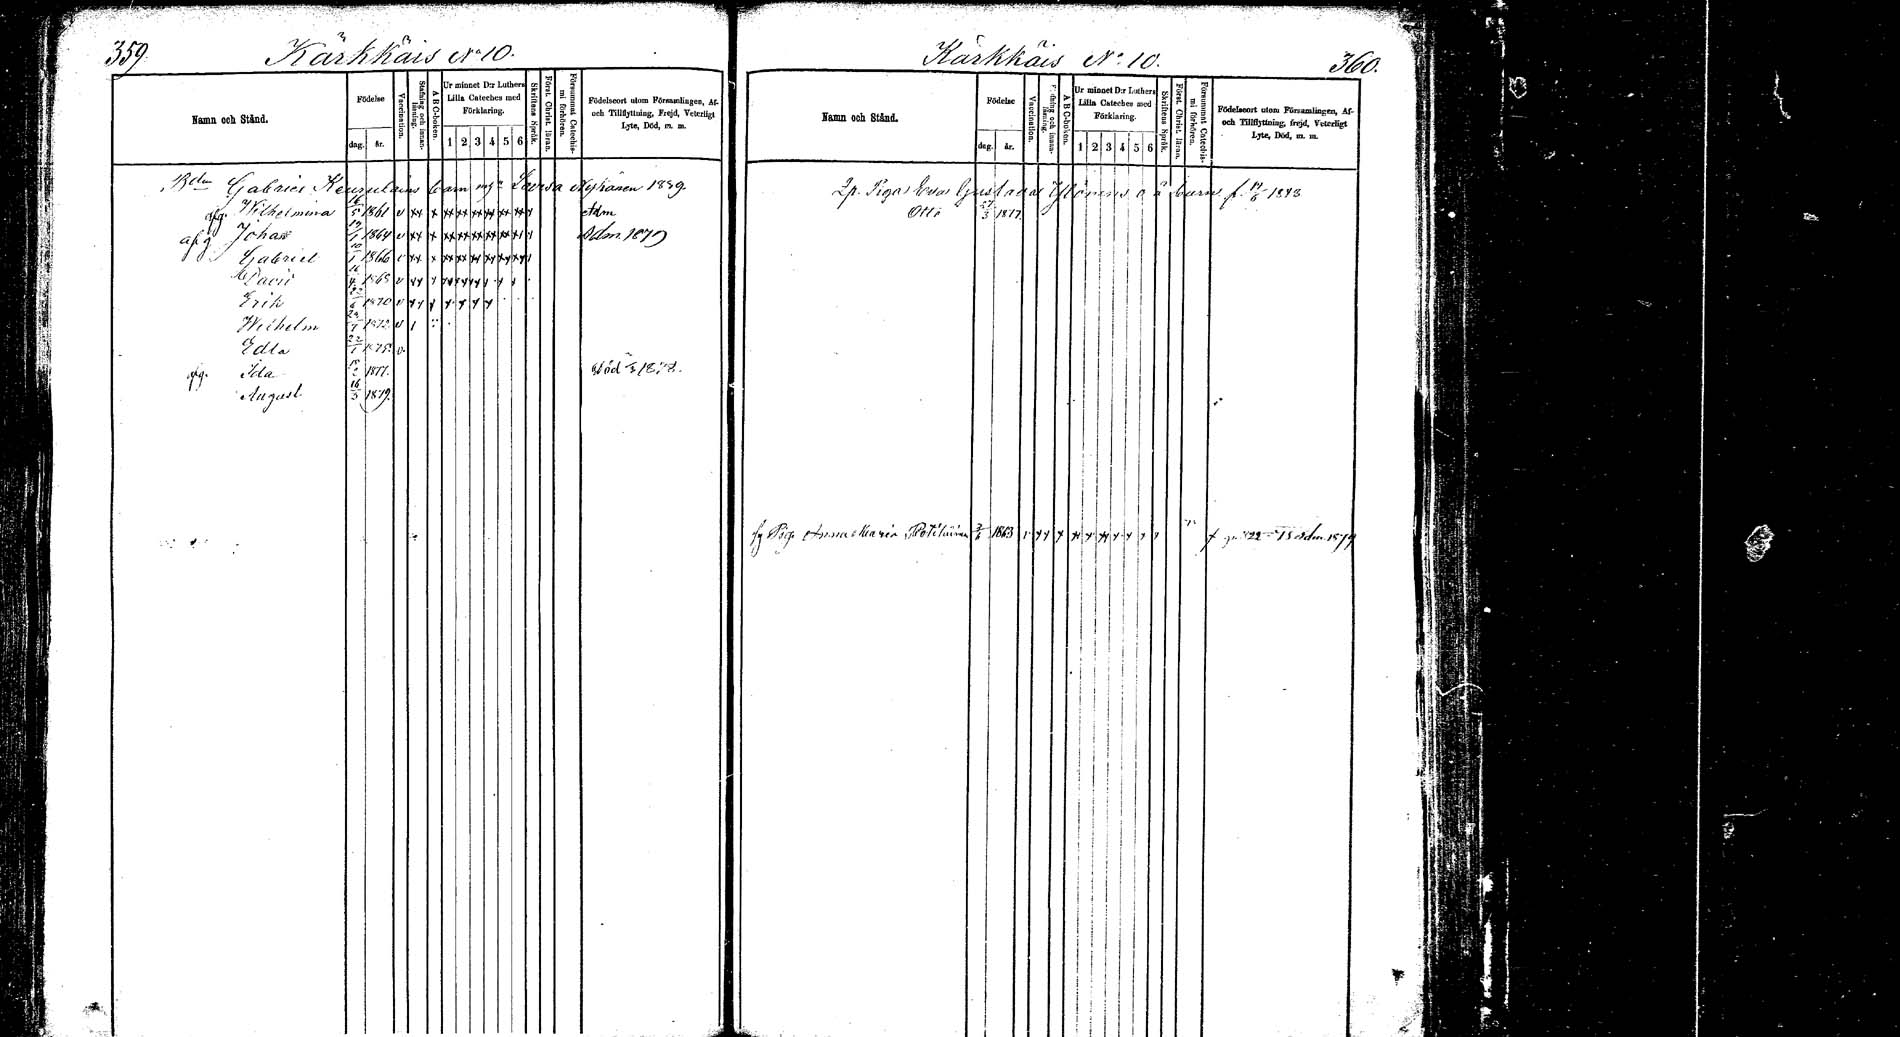 359.
Kärkkäis No 10.
Namn och Stånd.
Födelse
dag. år.
Vaccination.
Stafning och innan-läsning.
A B C-boken.
Ur minnet D:r Luthers
Lilla Cateches med
Förklaring.
1 2 3 4 5 6
Skriftens Språk.
Först. Christ. läran.
Försummat Catechis-mi förhören.
Födelseort utom Församlingen, Af-
och Tillflyttning, Frejd, Veterligt
Lyte, Död, m. m.
Bdm Gabriel barn m Lovisa Nykänen 1839.
Wilhelmina 16/5 1861 Adm
afg Johan 1864 Adm. 1879
Gabriel 10/1 1866
David 1868
Erik 1870
Wilhelm 1872
Edla 1875
afg. Ida 1877. död 1878.
August 16/3 1879.
Kärkkäis No 10.
360.
Namn och Stånd.
Födelse
dag. år.
Vaccination.
Stafning och innan-läsning.
A B C-boken.
Ur minnet D:r Luthers
Lilla Cateches med
Förklaring.
1 2 3 4 5 6
Skriftens Språk.
Först. Christ. läran.
Försummat Catechis-mi förhören.
Födelseort utom Församlingen, Af-
och Tillflyttning, frejd, Veterligt
Lyte, Död, m. m.
Piga Eva Gustava o ä barn f. 1843
Otto 27/3 1877.
Pig. Anna Maria 1863 adm. 1879